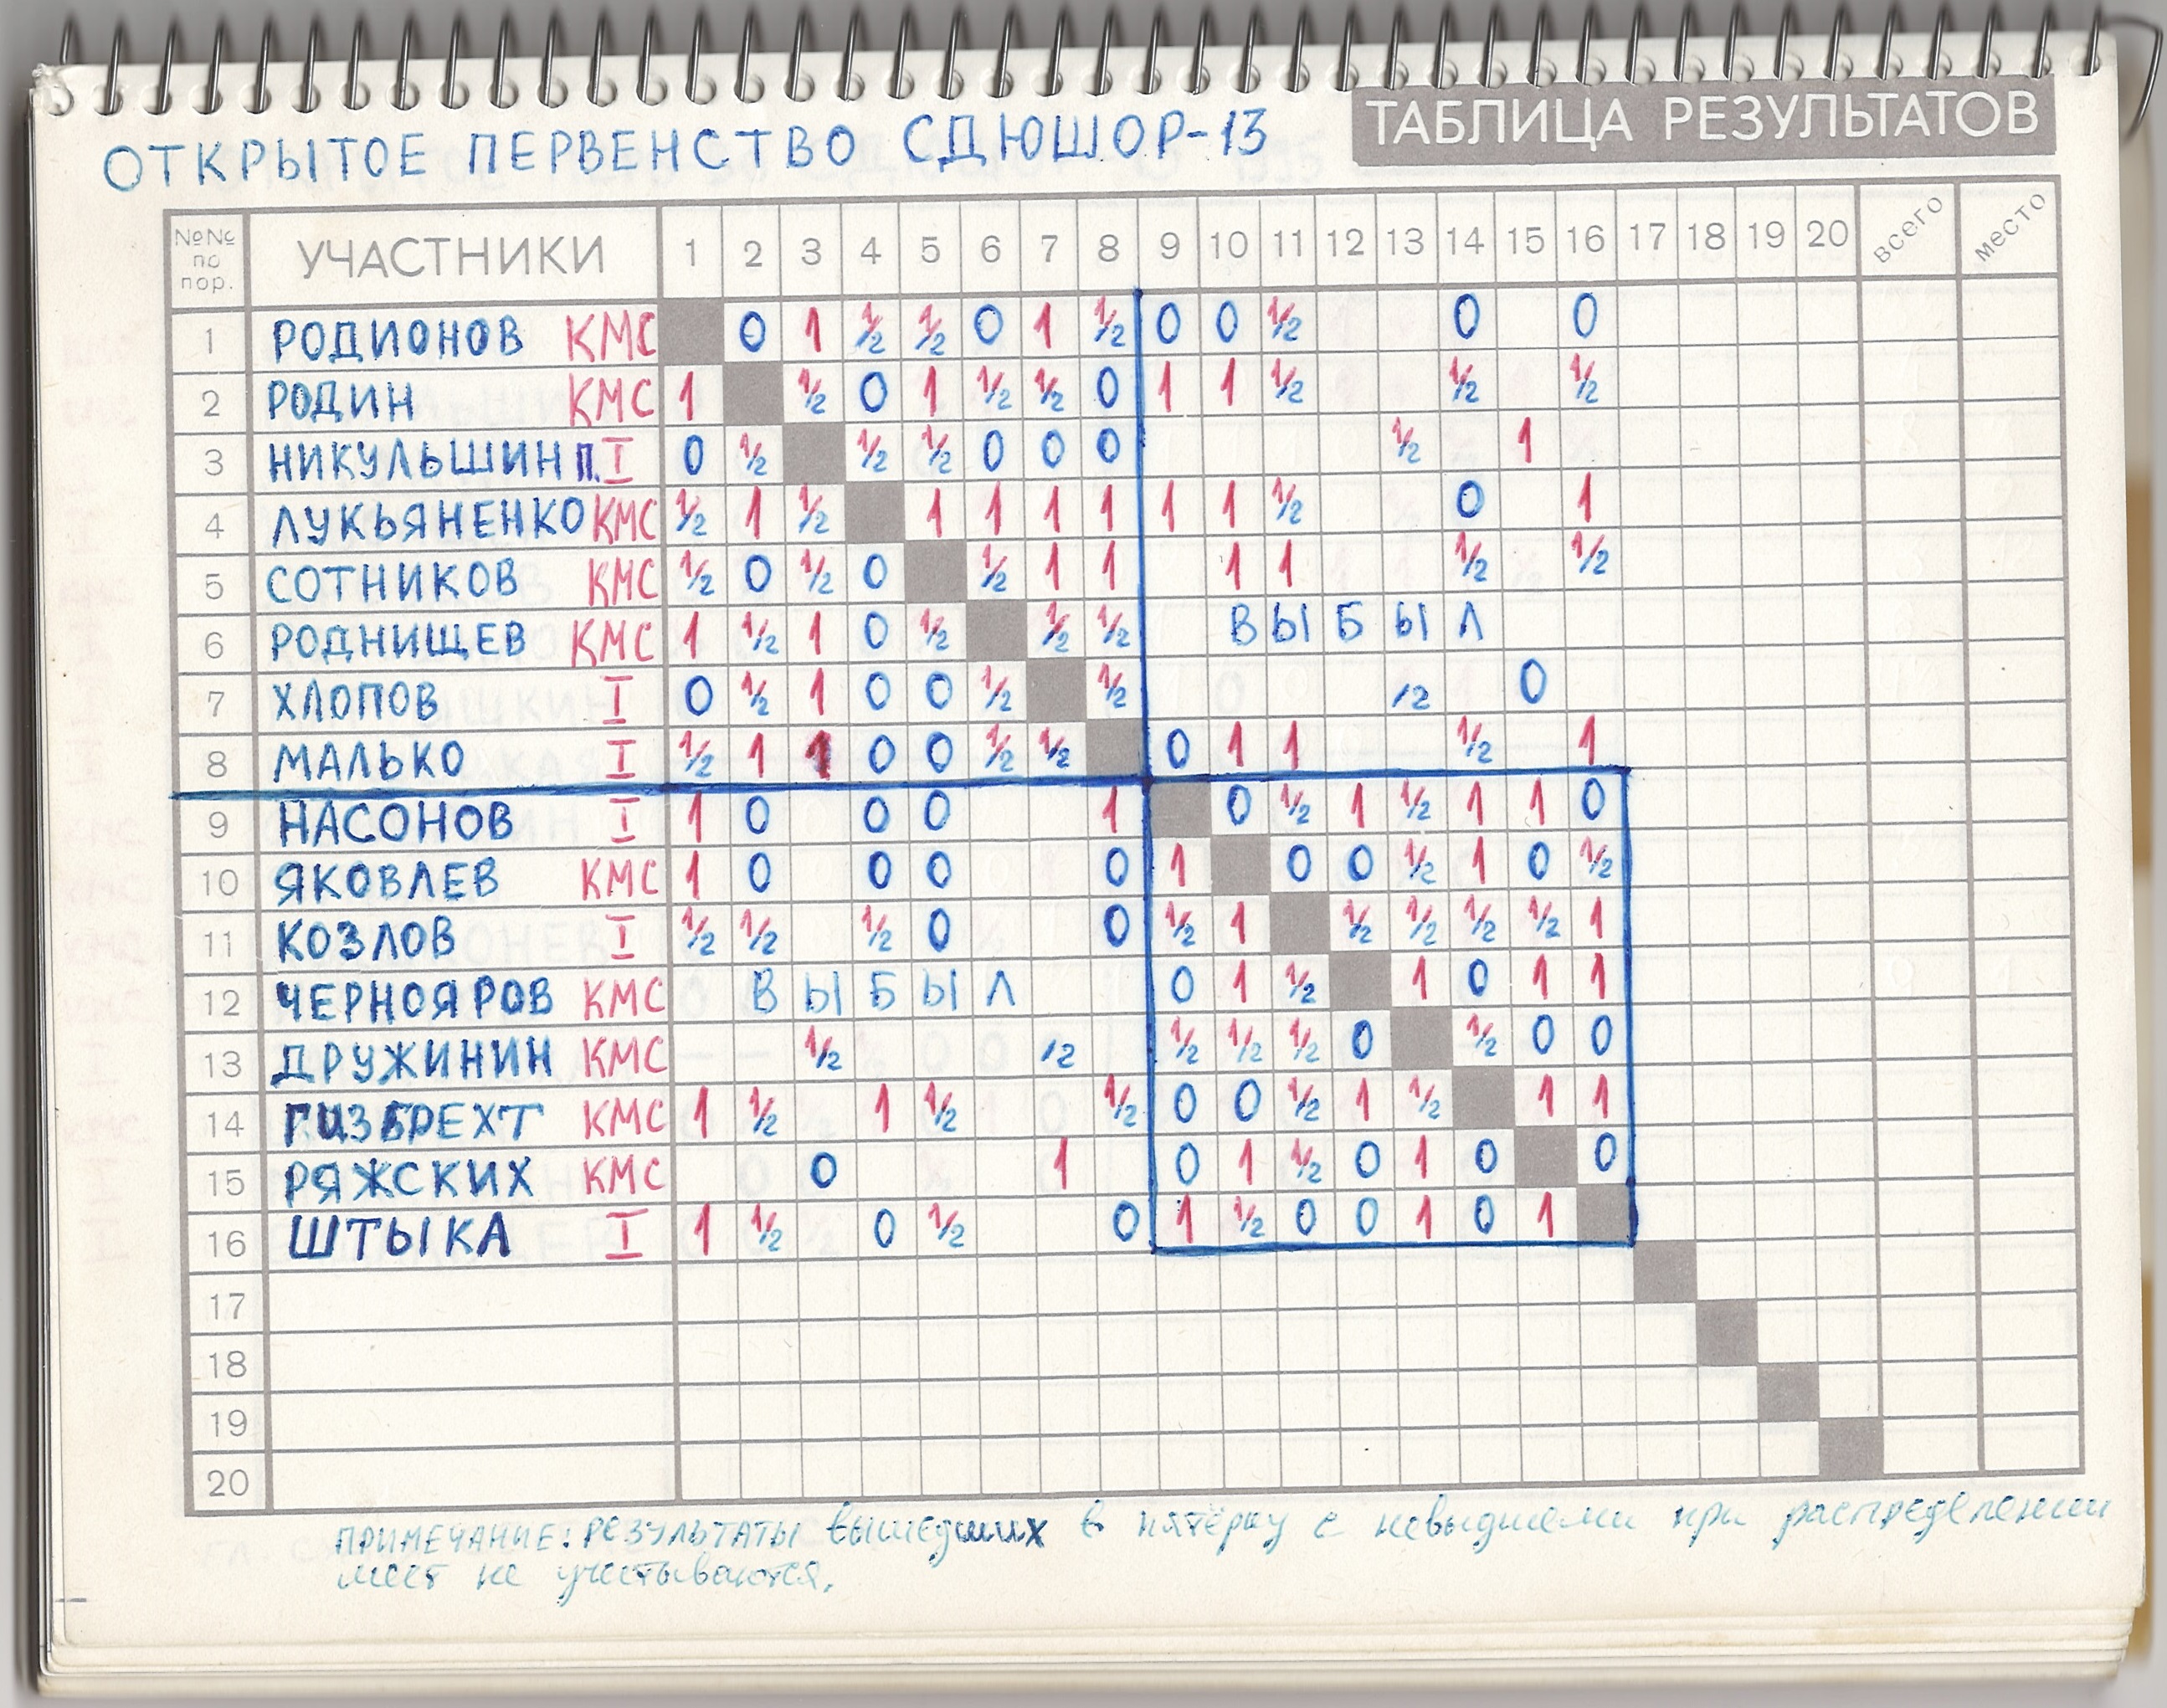 ОТКРЫТОЕ ПЕРВЕНСТВО СДЮШОР-13 ТАБЛИЦА РЕЗУЛЬТАТОВ
№№ по пор. УЧАСТНИКИ 1 2 3 4 5 6 7 8 9 10 11 12 13 14 15 16 17 18 19 20 всего место
1 РОДИОНОВ КМС 0 1 ½ ½ 0 1 ½ 0 0 ½ 0 0
2 РОДИН КМС 1 ½ 0 1 ½ ½ 0 1 1 ½ ½ ½
3 НИКУЛЬШИН П. I 0 ½ ½ ½ 0 0 0 ½ 1
4 ЛУКЬЯНЕНКО КМС ½ 1 ½ 1 1 1 1 1 1 ½ 0 1
5 СОТНИКОВ КМС ½ 0 ½ 0 ½ 1 1 1 1 ½ ½
6 РОДНИЩЕВ КМС 1 ½ 1 0 ½ ½ ½ ВЫБЫЛ
7 ХЛОПОВ I 0 ½ 1 0 0 ½ ½ /2 0
8 МАЛЬКО I ½ 1 1 0 0 ½ ½ 0 1 1 ½ 1
9 НАСОНОВ I 1 0 0 0 1 0 ½ 1 ½ 1 1 0
10 ЯКОВЛЕВ КМС 1 0 0 0 0 1 0 0 ½ 1 0 ½
11 КОЗЛОВ I ½ ½ ½ 0 0 ½ 1 ½ ½ ½ ½ 1
12 ЧЕРНОЯРОВ КМС ВЫБЫЛ 0 1 ½ 1 0 1 1
13 ДРУЖИНИН КМС ½ /2 ½ ½ ½ 0 ½ 0 0
14 ГИЗБРЕХТ КМС 1 ½ 1 ½ ½ 0 0 ½ 1 ½ 1 1
15 РЯЖСКИХ КМС 0 1 0 1 ½ 0 1 0 0
16 ШТЫКА I 1 ½ 0 ½ 0 1 ½ 0 0 1 0 1
17
18
19
20
ПРИМЕЧАНИЕ: РЕЗУЛЬТАТЫ вышедших в пятёрку с невышдшеми при распределении
мест не учитываются.